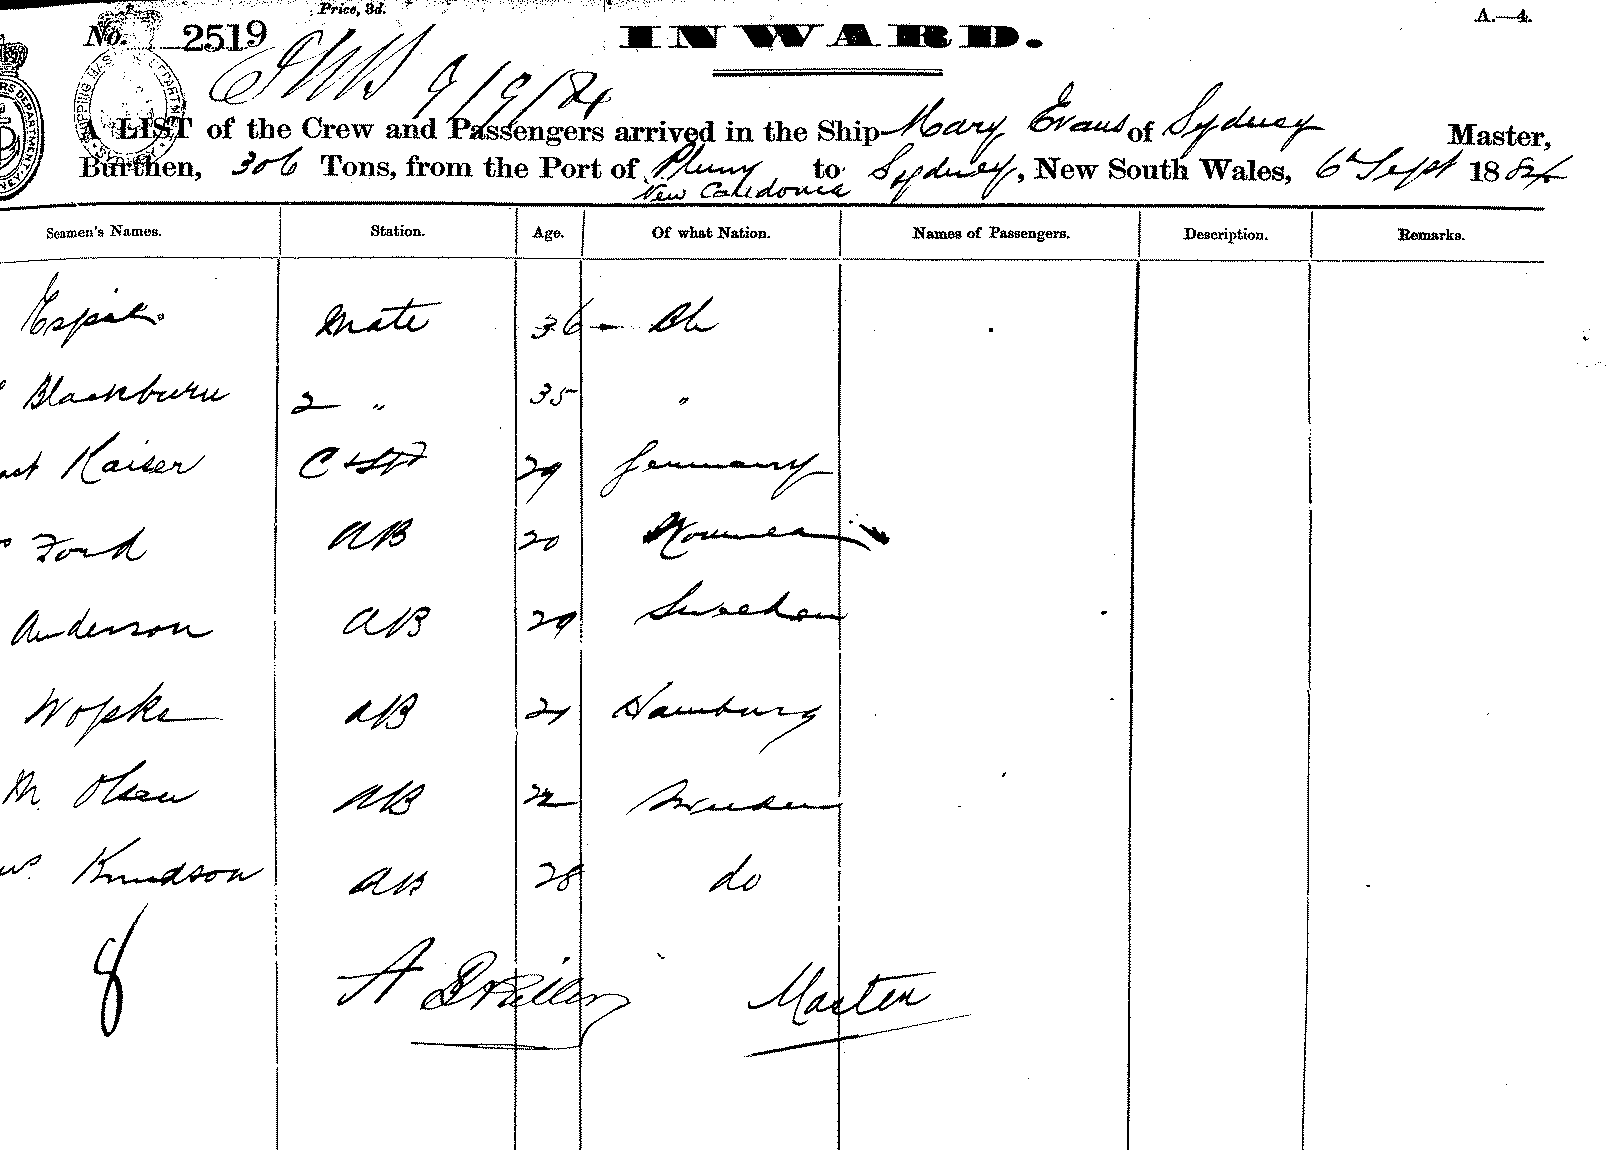 Price, 3d.
A.—4.
No. 2519
INWARD.
9/9/84
A LIST of the Crew and Passengers arrived in the Ship Mary Evans of Sydney Master,
Burthen, 306 Tons, from the Port of to Sydney, New South Wales, 6th Sept 1884
New Caledonia
Seamen's Names. Station. Age. Of what Nation. Names of Passengers. Description. Remarks.
Mate 36
Blackburn 2 " 35 "
Kaiser 29 Germany
Ford AB 20
Anderson AB 29 Sweden
Wopke AB 21 Hamburg
M. Olsen AB 22 Sweden
Knudson AB 28 do
8
A Master